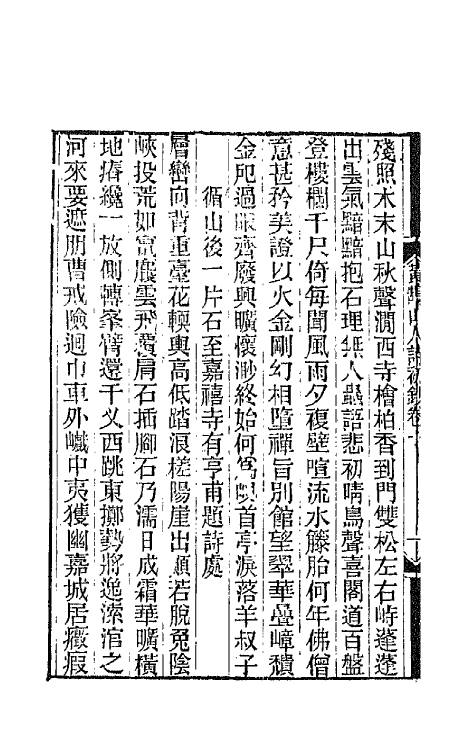 殘照木末山秋聲澗西寺檜柏香到門雙松左右峙蓬蓬
出雲氣黯黯抱石理無人蟲語悲初晴鳥聲喜閣道百盤
登樓欄千尺倚每聞風雨夕複壁喧流水籐胎何年佛僧
意甚矜美證以火金剛幻相墮禪旨別館望翠華疊嶂積
金戺過眼齊廢興曠懷渺終始何為峴首亭淚落羊叔子
循山後一片石至嘉禧寺有亨甫題詩處
層巒向背重臺花輭輿高低踏浪槎陽崖出願若脫兔陰
峽投荒如竄麚雲飛覆肩石插腳石乃濡日成霜華曠橫
地瘠纔一放側轉峯臂還千义西跳東擲勢將逸濚涫之
河來要遮朋曹戒險迴巾車外巇中夷獲幽嘉城居癥瘕